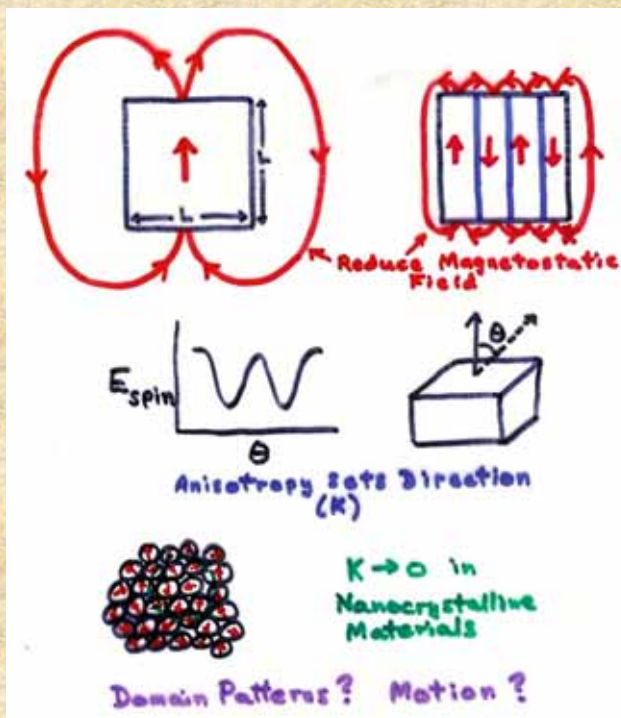 L
L
Reduce Magnetostatic
Field
E spin
θ
θ
Anisotropy Sets Direction
(K)
K → 0 in
Nanocrystalline
Materials
Domain Patterns? Motion?